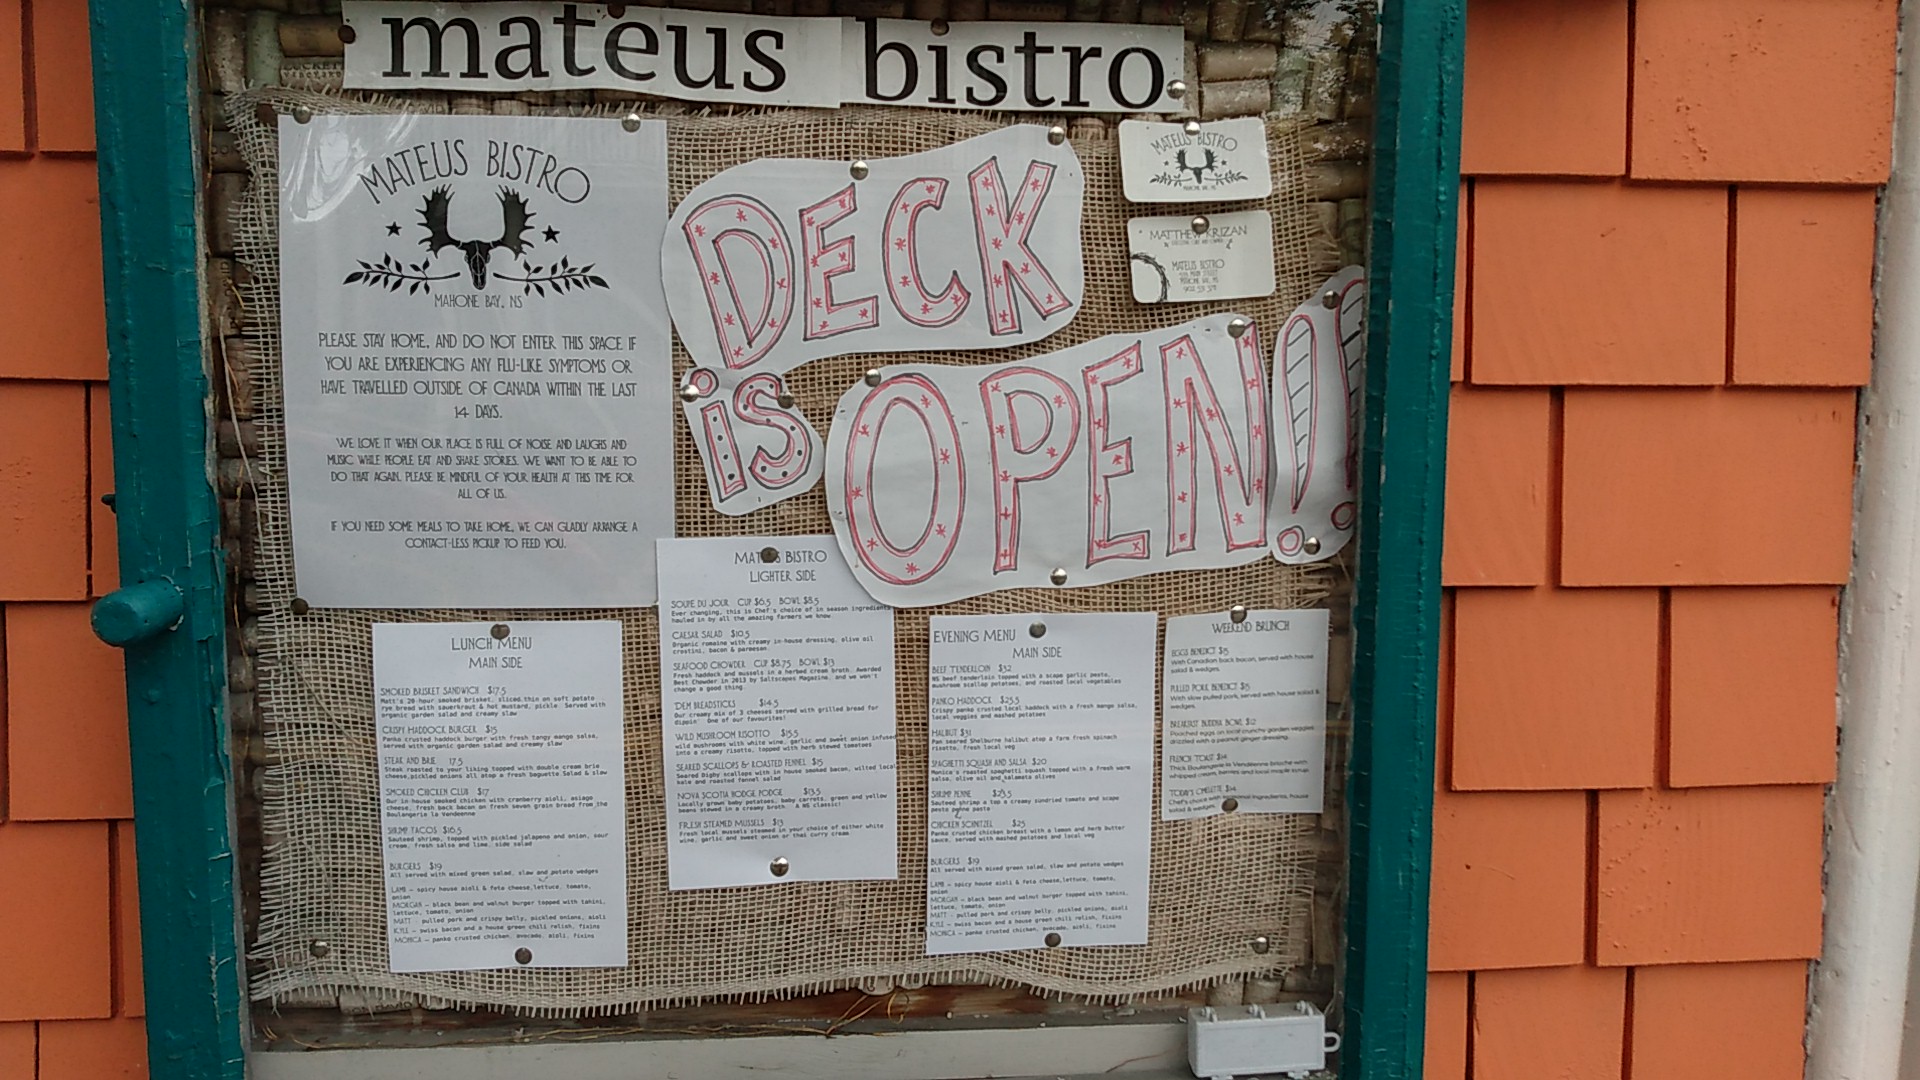 mateus bistro
MATEUS BISTRO
MAHONE BAY, NS
PLEASE STAY HOME, AND DO NOT ENTER THIS SPACE IF
YOU ARE EXPERIENCING ANY FLU-LIKE SYMPTOMS OR
HAVE TRAVELLED OUTSIDE OF CANADA WITHIN THE LAST
14 DAYS.
WE LOVE IT WHEN OUR PLACE IS FULL OF NOISE AND LAUGHS AND
MUSIC WHILE PEOPLE EAT AND SHARE STORIES. WE WANT TO BE ABLE TO
DO THAT AGAIN. PLEASE BE MINDFUL OF YOUR HEALTH AT THIS TIME FOR
ALL OF US.
IF YOU NEED SOME MEALS TO TAKE HOME, WE CAN GLADLY ARRANGE A
CONTACT-LESS PICKUP TO FEED YOU.
DECK
is
OPEN!!
MATEUS BISTRO
MAHONE BAY, NS
MATTHEW KRIZAN
MATEUS BISTRO
MAIN STREET
MAHONE BAY, NS
LUNCH MENU
MAIN SIDE
SMOKED BRISKET SANDWICH $17.5
Matt's 20-hour smoked brisket, sliced thin on soft potato
rye bread with sauerkraut & hot mustard, pickle. Served with
organic garden salad and creamy slaw
CRISPY HADDOCK BURGER $15
Panko crusted haddock burger with fresh tangy mango salsa,
served with organic garden salad and creamy slaw
STEAK AND BRIE 17.5
Steak roasted to your liking topped with double cream brie
cheese,pickled onions all atop a fresh baguette Salad & slaw
SMOKED CHICKEN CLUB $17
Our in-house smoked chicken with cranberry aioli, asiago
cheese, fresh back bacon on fresh seven grain bread from the
Boulangerie la Vendeenne
SHRIMP TACOS $16.5
Sauteed shrimp, topped with pickled jalapeno and onion, sour
cream, fresh salsa and lime, side salad
BURGERS $19
All served with mixed green salad, slaw and potato wedges
LAMB – spicy house aioli & feta cheese,lettuce, tomato,
onion
MORGAN – black bean and walnut burger topped with tahini,
lettuce, tomato, onion
MATT - pulled pork and crispy belly, pickled onions, aioli
KYLE – swiss bacon and a house green chili relish, fixins
MONICA – panko crusted chicken, avocado, aioli, fixins
MATEUS BISTRO
LIGHTER SIDE
SOUPE DU JOUR CUP $6.5 BOWL $8.5
Ever changing, this is Chef's choice of in season ingredients
hauled in by all the amazing farmers we know
CAESAR SALAD $10.5
Organic romaine with creamy in-house dressing, olive oil
crostini, bacon & parmesan
SEAFOOD CHOWDER CUP $8.75 BOWL $13
Fresh haddock and mussels in a herbed cream broth. Awarded
Best Chowder in 2013 by Saltscapes Magazine, and we won't
change a good thing
'DEM BREADSTICKS $14.5
Our creamy mix of 3 cheeses served with grilled bread for
dippin' One of our favourites!
WILD MUSHROOM RISOTTO $15.5
wild mushrooms with white wine, garlic and sweet onion infused
into a creamy risotto, topped with herb stewed tomatoes
SEARED SCALLOPS & ROASTED FENNEL $15
Seared Digby scallops with in house smoked bacon, wilted local
kale and roasted fennel salad
NOVA SCOTIA HODGE PODGE $13.5
Locally grown baby potatoes, baby carrots, green and yellow
beans stewed in a creamy broth. A NS classic!
FRESH STEAMED MUSSELS $13
Fresh local mussels steamed in your choice of either white
wine, garlic and sweet onion or thai curry cream
EVENING MENU
MAIN SIDE
BEEF TENDERLOIN $32
NS beef tenderloin topped with a scape garlic pesto,
mushroom scallop potatoes, and roasted local vegetables
PANKO HADDOCK $25.5
Crispy panko crusted local haddock with a fresh mango salsa,
local veggies and mashed potatoes
HALIBUT $31
Pan seared Shelburne halibut atop a farm fresh spinach
risotto, fresh local veg
SPAGHETTI SQUASH AND SALSA $20
Monica's roasted spaghetti squash topped with a fresh warm
salsa, olive oil and kalamata olives
SHRIMP PENNE $23.5
Sauteed shrimp a top a creamy sundried tomato and scape
pesto penne pasta
CHICKEN SCHNITZEL $25
Panko crusted chicken breast with a lemon and herb butter
sauce, served with mashed potatoes and local veg
BURGERS $19
All served with mixed green salad, slaw and potato wedges
LAMB – spicy house aioli & feta cheese,lettuce, tomato,
onion
MORGAN – black bean and walnut burger topped with tahini,
lettuce, tomato, onion
MATT - pulled pork and crispy belly, pickled onions, aioli
KYLE – swiss bacon and a house green chili relish, fixins
MONICA – panko crusted chicken, avocado, aioli, fixins
WEEKEND BRUNCH
EGGS BENEDICT $15
With Canadian back bacon, served with house
salad & wedges.
PULLED PORK BENEDICT $15
With slow pulled pork, served with house salad &
wedges.
BREAKFAST BUDDHA BOWL $12
Poached eggs on local crunchy garden veggies
drizzled with a peanut ginger dressing.
FRENCH TOAST $14
Thick Boulangerie la Vendeenne brioche with
whipped cream, berries and local maple syrup.
TODAY'S OMELETTE $14
Chef's choice with seasonal ingredients, house
salad & wedges.